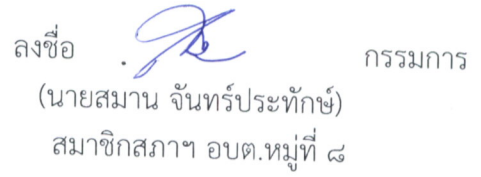 ลงชื่อ . กรรมการ
(นายสมาน จันทร์ประทักษ์)
สมาชิกสภาฯ อบต.หมู่ที่ ๘